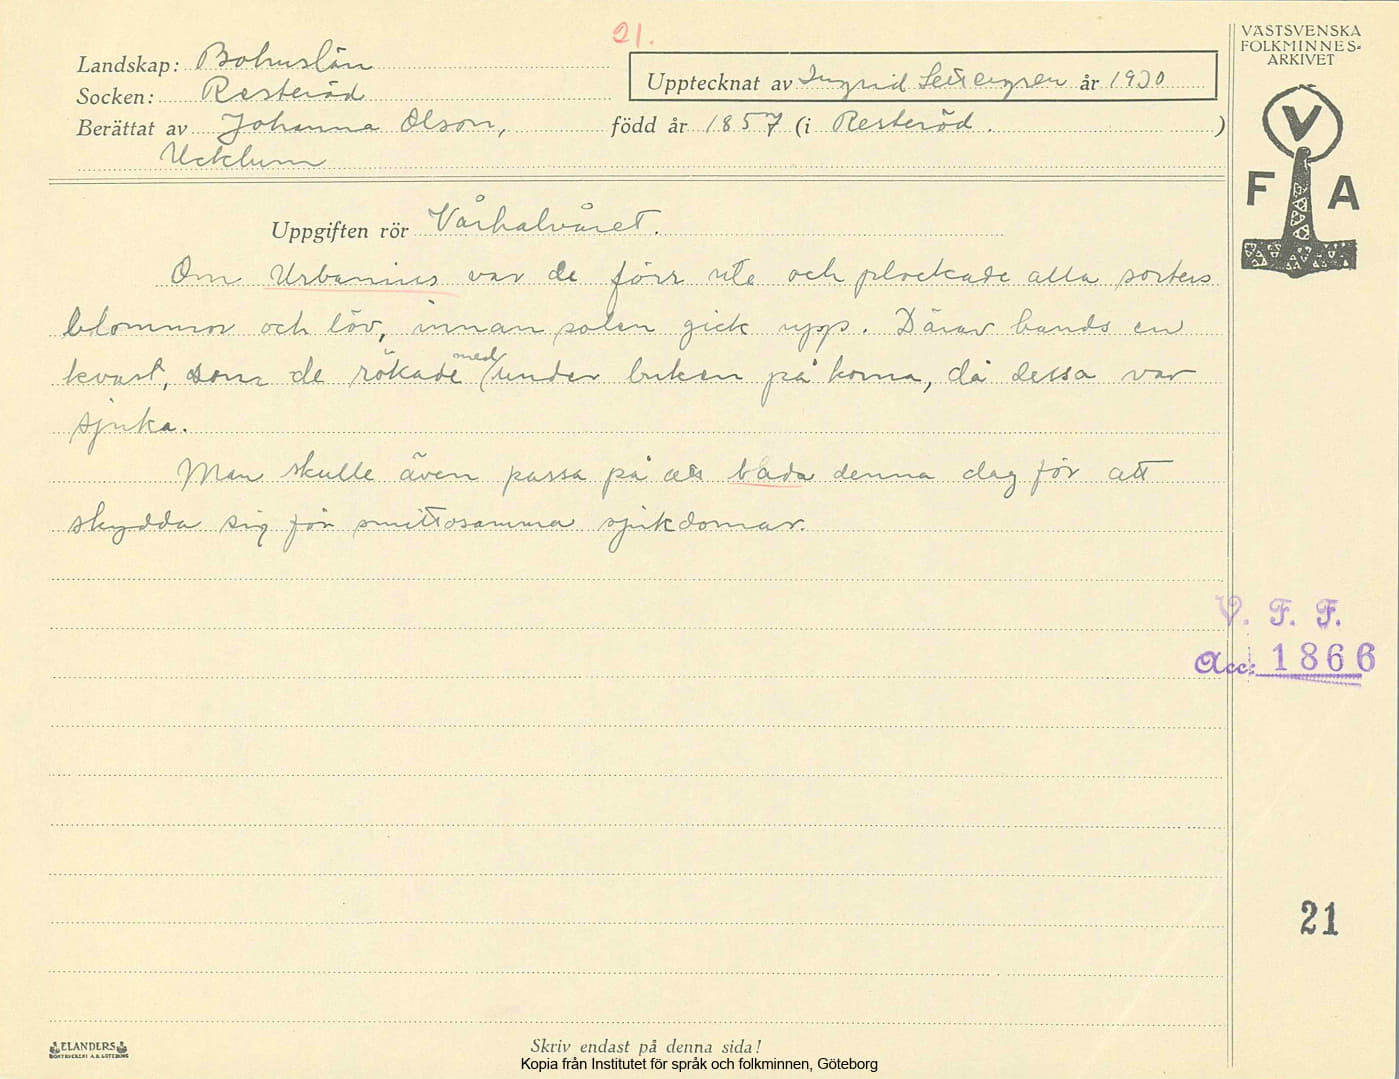 21.
VÄSTSVENSKA
FOLKMINNES-
ARKIVET
Landskap: Bohuslän
Upptecknat av Ingrid år 1930
Socken: Resteröd
Berättat av Johanna Olson, född år 1857 (i Resteröd. )
Ucklum
V
F A
Uppgiften rör Vårhalvåret.
Om Urbanius var de förr ute och plockade alla sorters
blommor och löv, innan solen gick upp. Därav bands en
kvast, som de rökade med under buken på korna, då dessa var
sjuka.
Man skulle även passa på att bada denna dag för att
skydda sig för smittosamma sjukdomar.
V. F. F.
Acc: 1866
21
ELANDERS
BOKTRYCKERI A.B. GÖTEBORG
Skriv endast på denna sida!
Kopia från Institutet för språk och folkminnen, Göteborg